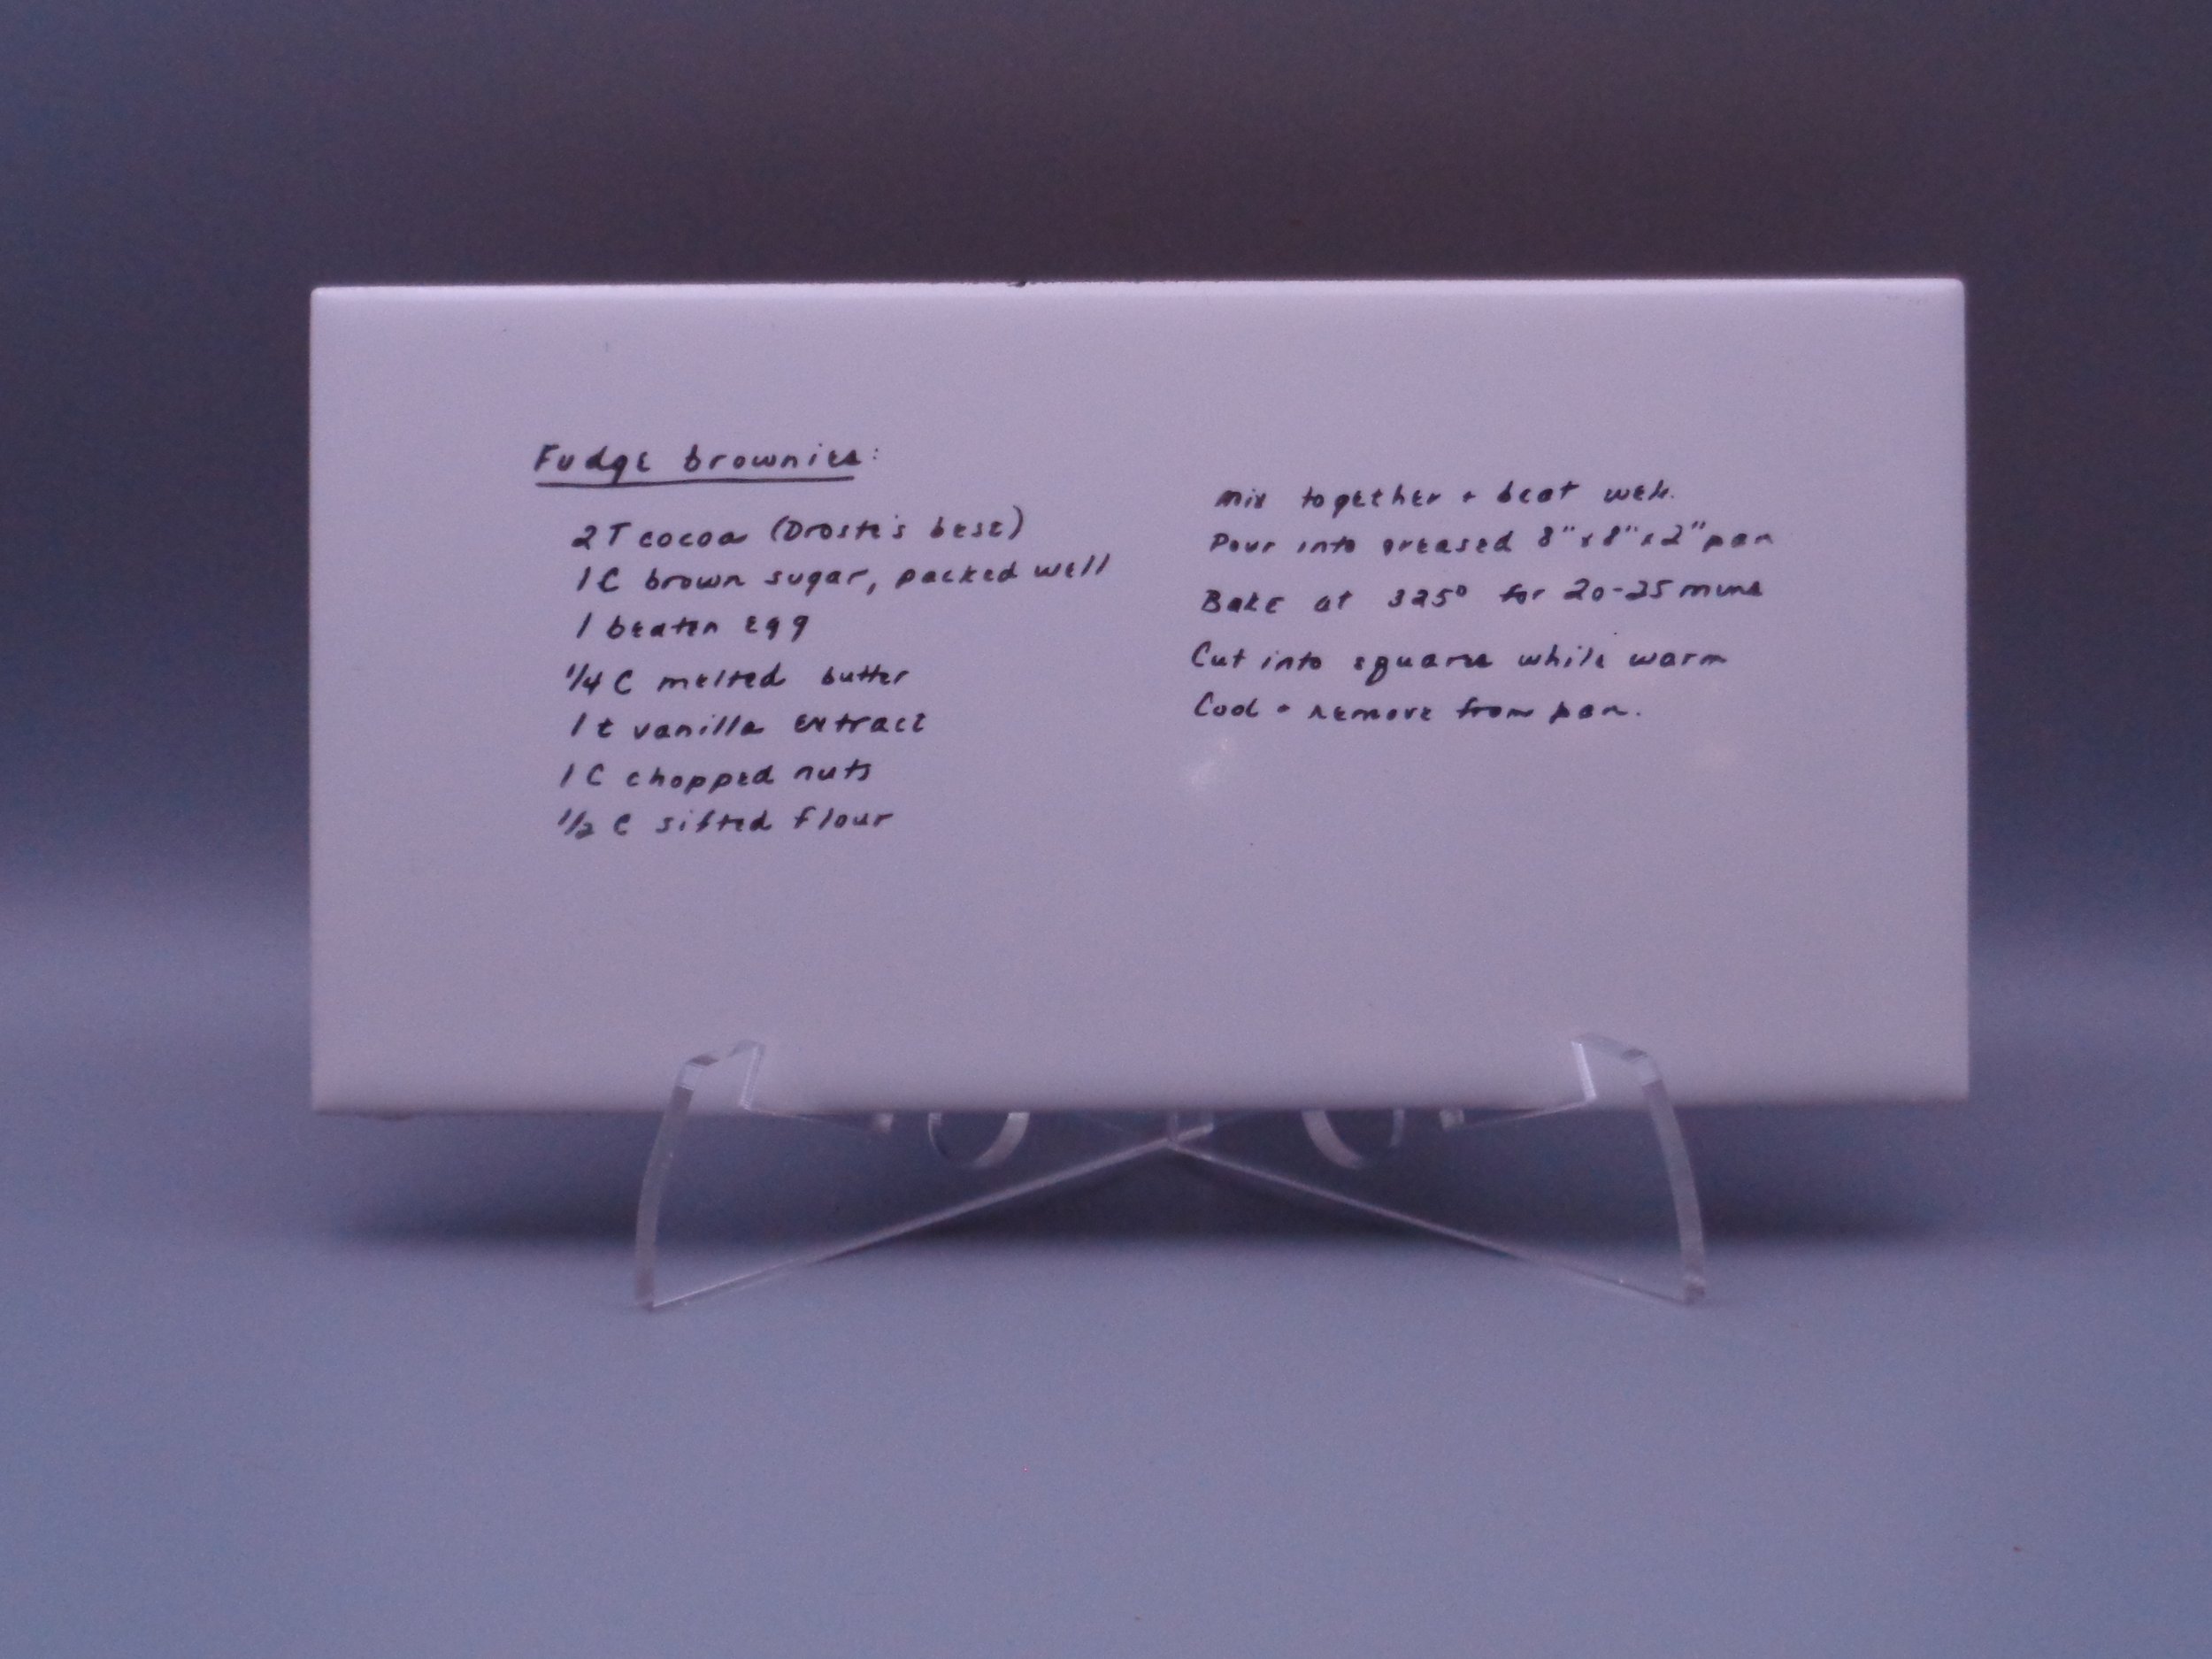 Fudge brownies:
2 T cocoa (Droste's best)
1 C brown sugar, packed well
1 beaten egg
1/4 C melted butter
1 t vanilla extract
1 C chopped nuts
1/2 C sifted flour
Mix together + beat well.
Pour into greased 8" x 8" x 2" pan
Bake at 325° for 20-25 mins
Cut into squares while warm
Cool + remove from pan.